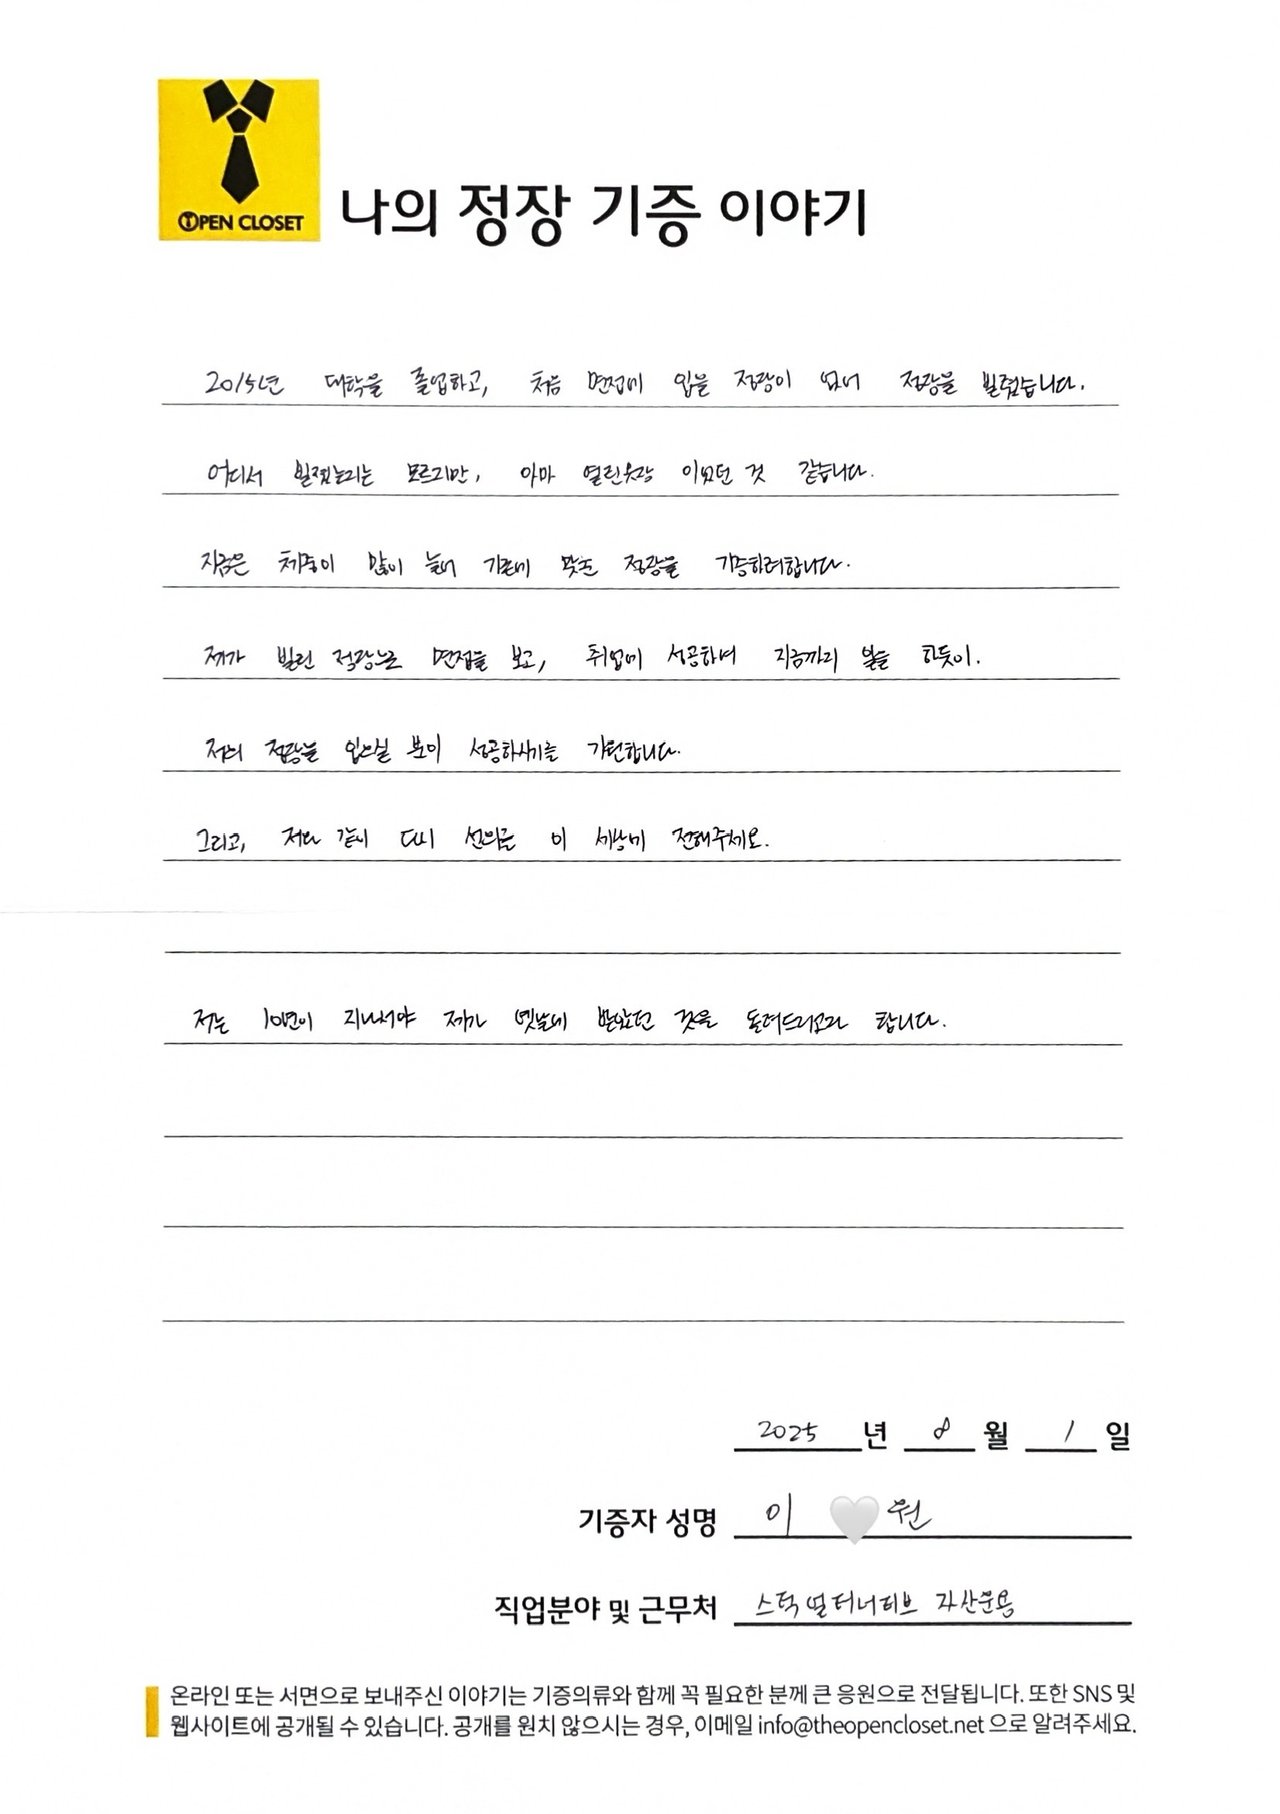 OPEN CLOSET
나의 정장 기증 이야기
2015년 대학을 졸업하고, 처음 면접에 입을 정장이 없어 정장을 빌렸습니다.
어디서 빌렸는지는 모르지만, 아마 열린옷장 이었던 것 같습니다.
지금은 체중이 많이 늘어 기존에 맞춘 정장을 기증하려합니다.
제가 빌린 정장으로 면접을 보고, 취업에 성공하여 지금까지 일을 하듯이.
저의 정장을 입으실 분이 성공하시기를 기원합니다.
그리고, 저와 같이 다시 선의를 이 세상에 전해주세요.
저는 10년이 지나서야 제가 옛날에 받았던 것을 돌려드리고자 합니다.
2025 년 8 월 1 일
기증자 성명 이 🤍원
직업분야 및 근무처 스틱얼터너티브 자산운용
온라인 또는 서면으로 보내주신 이야기는 기증의류와 함께 꼭 필요한 분께 큰 응원으로 전달됩니다. 또한 SNS 및
웹사이트에 공개될 수 있습니다. 공개를 원치 않으시는 경우, 이메일 info@theopencloset.net 으로 알려주세요.